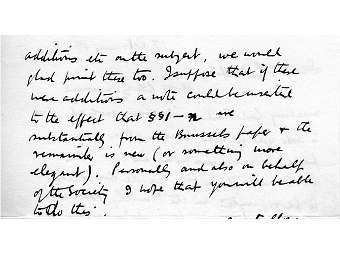 additions etc on the subject, we would
glad print these too. I suppose that if there
were additions a note could be inserted
to the effect that §§1–n are
substantially from the Brussels paper & the
remainder is new (or something more
elegant). Personally and also on behalf
of the Society I hope that you will be able
to do this.